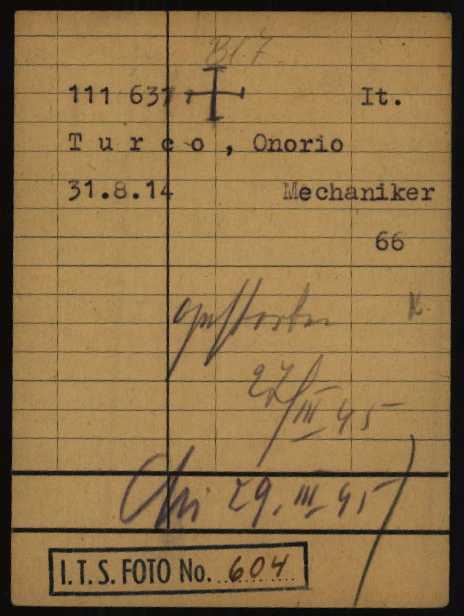 Bl. 7
111 631 It.
T u r c o , Onorio
31.8.14 Mechaniker
66
gestorben
27/III 45
29. III 45
I.T.S. FOTO No. 604